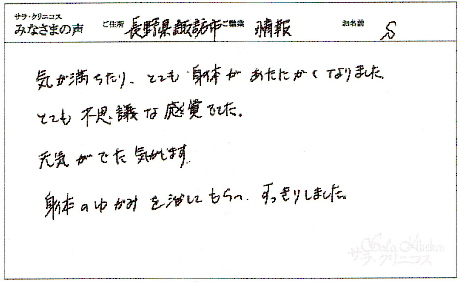 サラ・クリニコス
みなさまの声 ご住所 長野県諏訪市 ご職業 情報 お名前 S
気が満ちたり、とても身体があたたかくなりました
とても不思議な感覚でした。
元気がでた気がします。
身体のゆがみを治してもらい、すっきりしました。
サラ・クリニコス